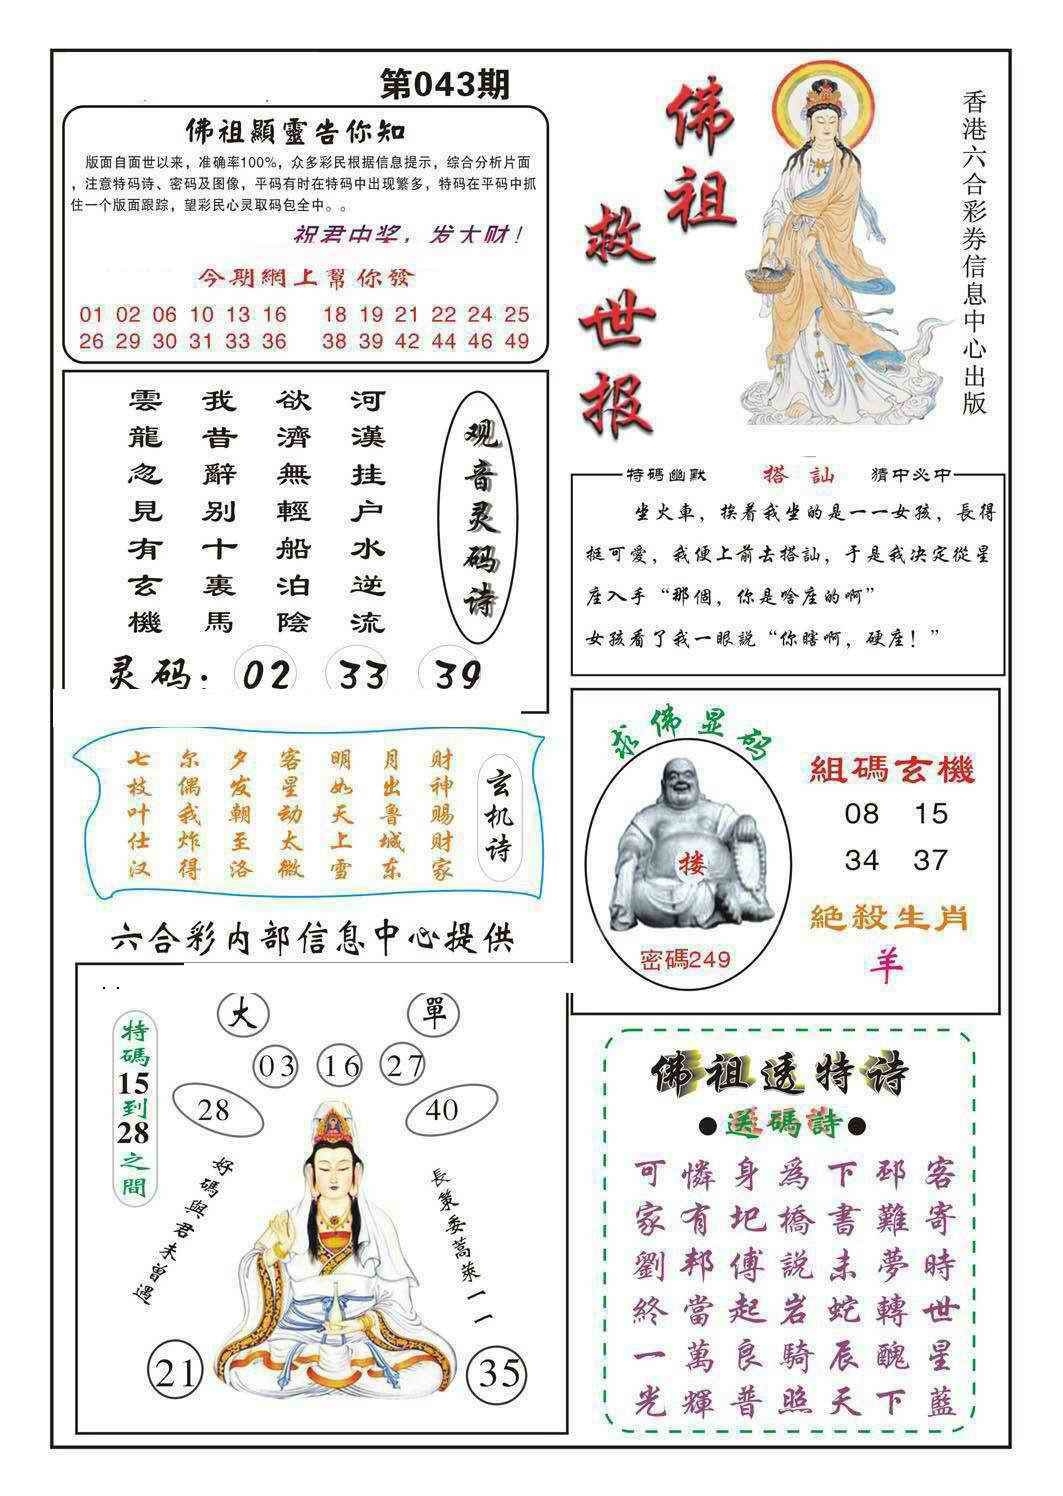 第043期
佛祖顯靈告你知
版面自面世以来，准确率100%，众多彩民根据信息提示，综合分析片面
，注意特码诗、密码及图像，平码有时在特码中出现繁多，特码在平码中抓
住一个版面跟踪，望彩民心灵取码包全中。。
祝君中奖，发大财！
今期網上幫你發
01 02 06 10 13 16 18 19 21 22 24 25
26 29 30 31 33 36 38 39 42 44 46 49
佛祖救世报
香港六合彩券信息中心出版
观音灵码诗
河漢挂户水逆流
欲濟無輕船泊陰
我昔辭别十裏馬
雲龍忽見有玄機
灵码：02 33 39
特码幽默 搭訕 猜中必中
坐火車，挨着我坐的是一一女孩，長得
挺可愛，我便上前去搭訕，于是我决定從星
座入手“那個，你是啥座的啊”
女孩看了我一眼説“你瞎啊，硬座！”
玄机诗
财神赐财家
月出鲁城东
明如天上雪
客星动太微
夕发朝至洛
尔偶我炸得
七枝叶仕汉
求佛显码
搂
密碼249
組碼玄機
08 15
34 37
絶殺生肖
羊
六合彩内部信息中心提供
特碼15到28之間
大 單
03 16 27
28 40
好碼與君未曾遇
長策委蒿萊一一
21 35
佛祖透特诗
●送碼詩●
可憐身爲下邳客
家有圯橋書難寄
劉邦傅説未夢時
終當起岩蛇轉世
一萬良騎辰醜星
光輝普照天下藍